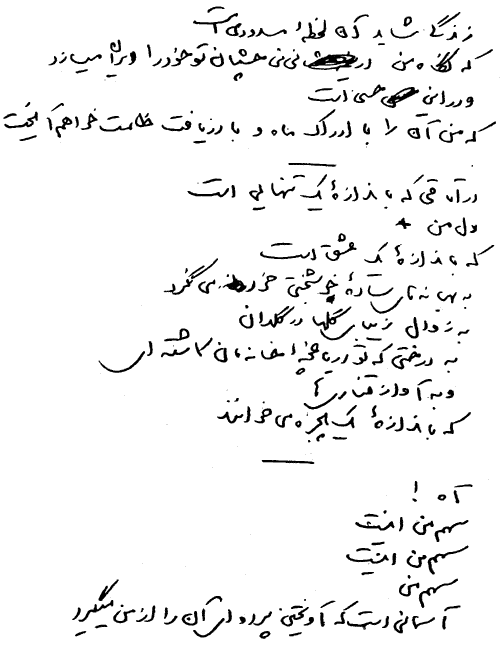 زندگی شاید آن لحظهٔ مسدودی است
که نگاه من در نی نی چشمان تو خود را ویران میسازد
و در این حسی است
که من آن را با ادراک ماه و با دریافت ظلمت خواهم آمیخت
در اتاقی که باندازهٔ یک تنهائی است
دل من
که باندازهٔ یک عشق است
به بهانه های سادهٔ خوشبختی خود می نگرد
به زوال زیبای گلها در گلدان
به درختی که تو در باغچهٔ خانه مان کاشته ای
و به آواز قناری ها
که باندازهٔ یک پنجره می خوانند
آه !
سهم من اینست
سهم من اینست
سهم من
آسمانی است که آویختن پرده ای آن را از من میگیرد